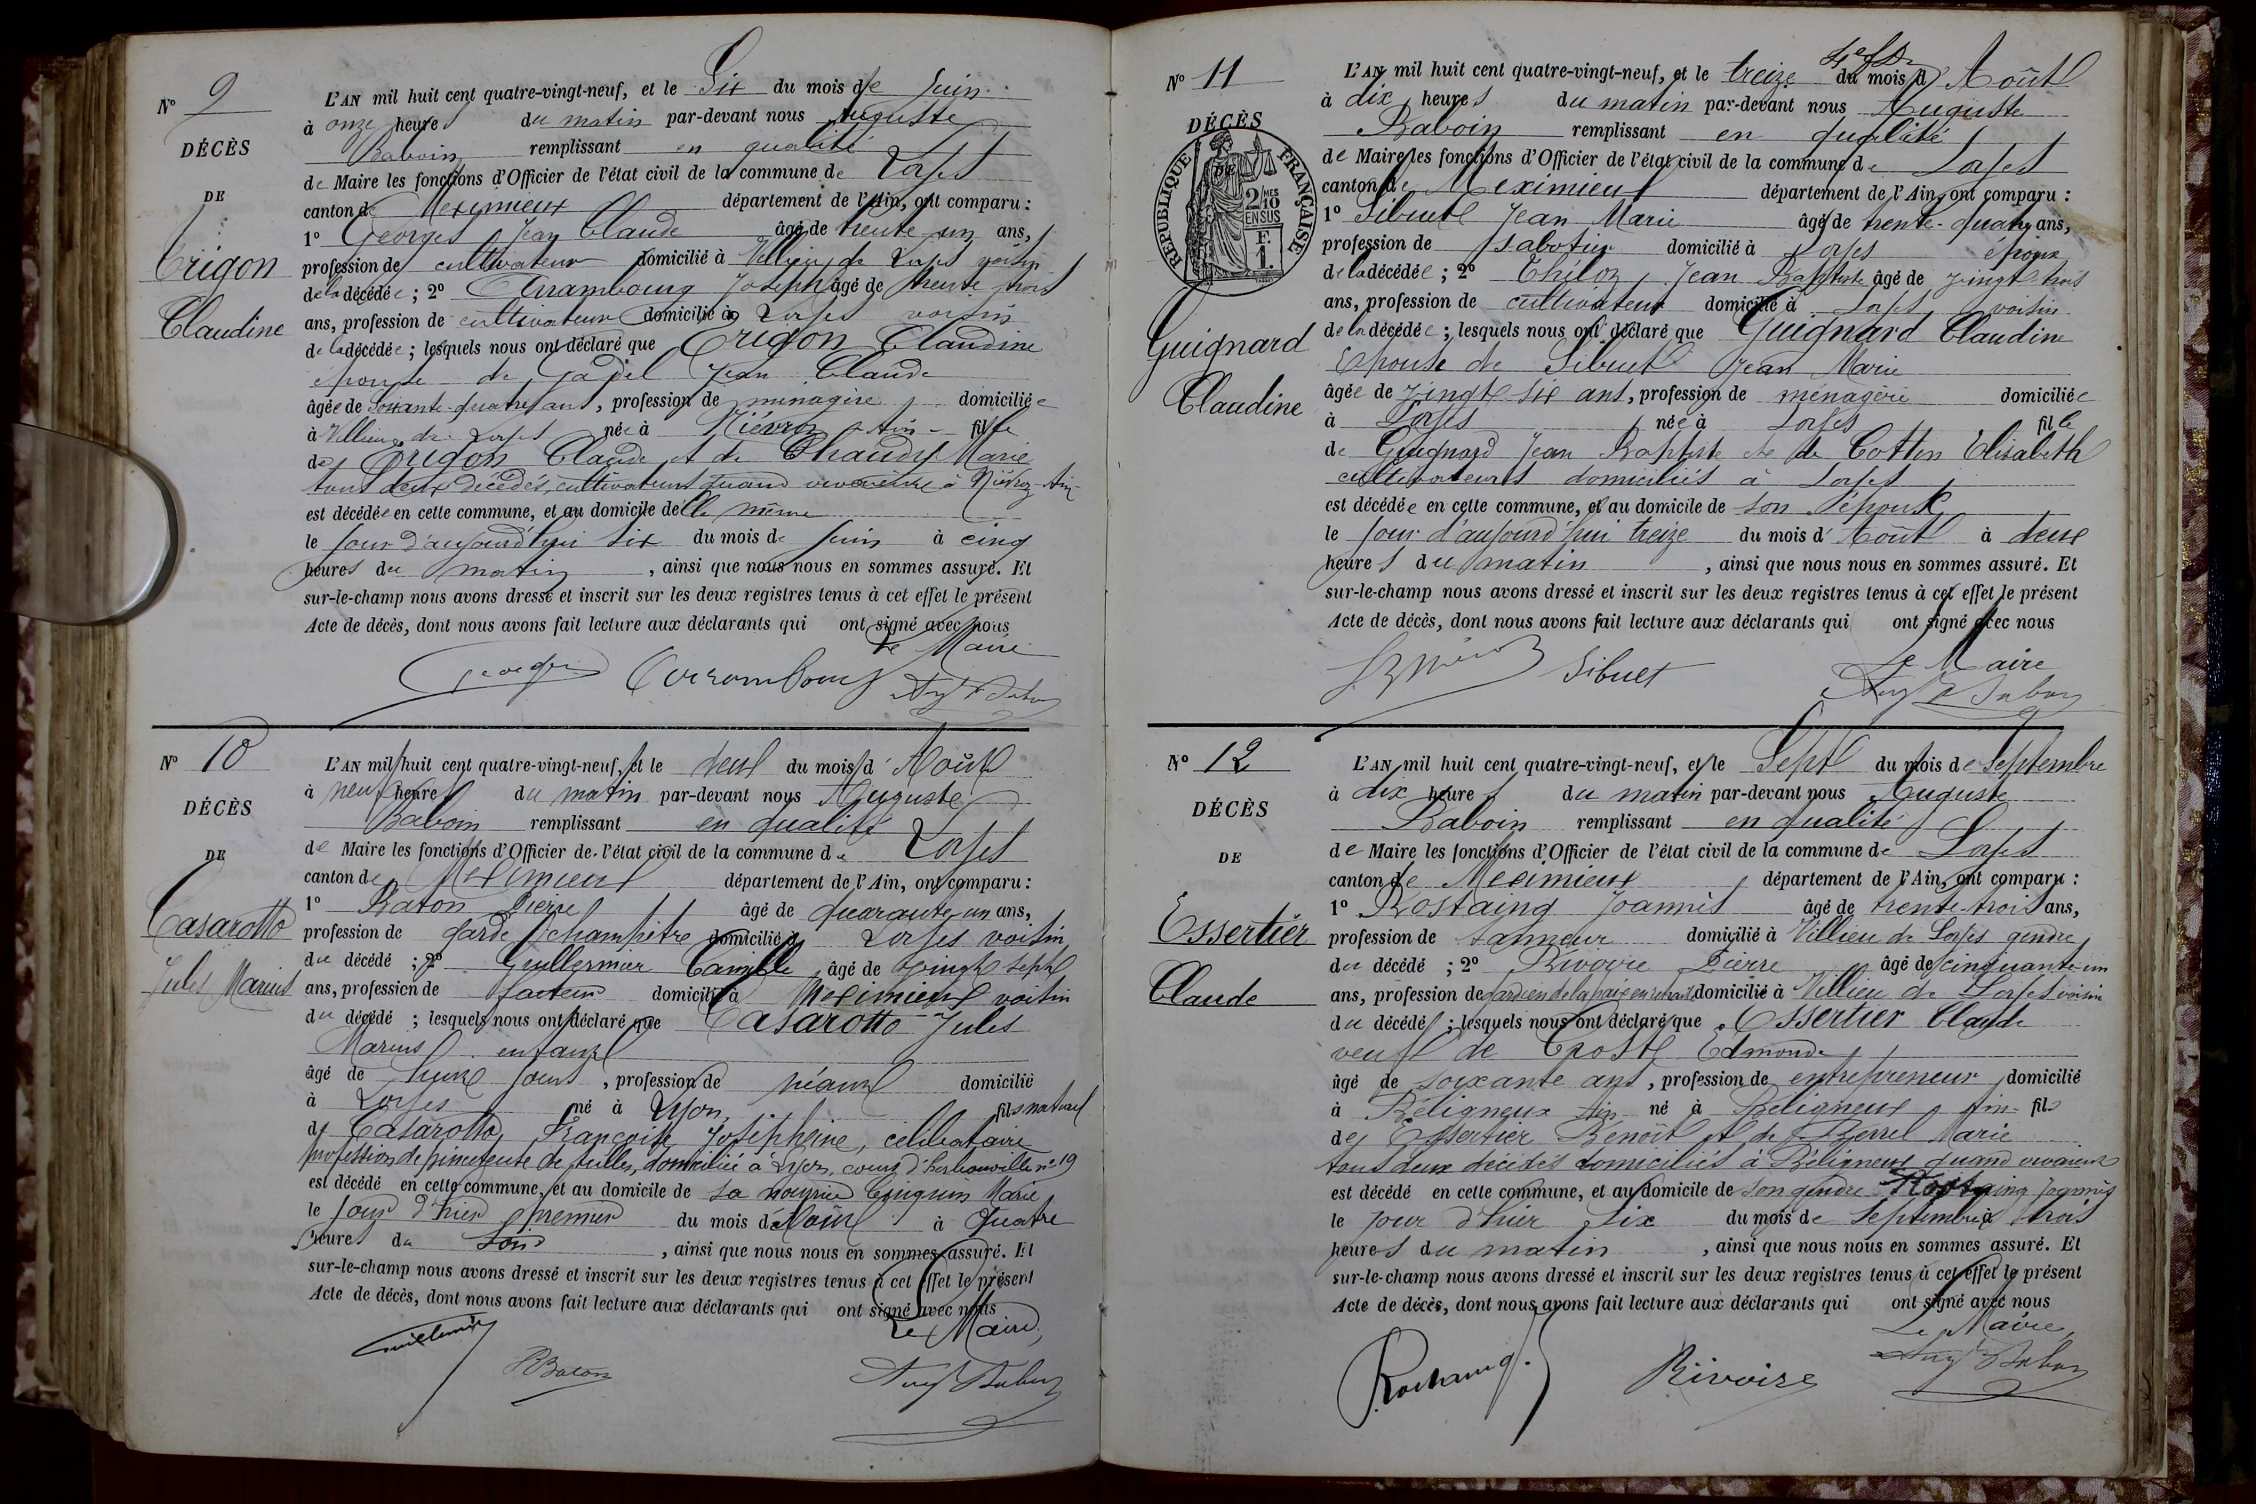 N° 9
DÉCÈS
DE
Trigon
Claudine
L'AN mil huit cent quatre-vingt-neuf, et le Six du mois de Juin
à onze heures du matin par-devant nous Auguste
Baboin remplissant en qualité
de Maire les fonctions d'Officier de l'état civil de la commune de Loyes
canton de Meximieux département de l'Ain, ont comparu :
1° Georges Jean Claude âgé de trente un ans,
profession de cultivateur domicilié à Villieu de Loyes voisin
de la décédée ; 2° Arrambourg Joseph âgé de trente trois
ans, profession de cultivateur domicilié à Loyes voisin
de la décédée ; lesquels nous ont déclaré que Trigon Claudine
épouse de Jean Claude
âgée de Soixante quatre ans, profession de ménagère domiciliée
à Villieu de Loyes née à Niévroz Ain fille
de Trigon Claude et de Chaudy Marie
tous deux décédés, cultivateurs quand vivaient à Niévroz Ain
est décédée en cette commune, et au domicile d'elle même
le jour d'aujourd'hui six du mois de Juin à cinq
heures du matin , ainsi que nous nous en sommes assuré. Et
sur-le-champ nous avons dressé et inscrit sur les deux registres tenus à cet effet le présent
Acte de décès, dont nous avons fait lecture aux déclarants qui ont signé avec nous
Le Maire
Georges Arrambourg Aug te Baboin
N° 10
DÉCÈS
DE
Casarotto
Jules Marius
L'AN mil huit cent quatre-vingt-neuf, et le deux du mois d'Août
à neuf heures du matin par-devant nous Auguste
Baboin remplissant en qualité
de Maire les fonctions d'Officier de l'état civil de la commune de Loyes
canton de Meximieux département de l'Ain, ont comparu :
1° Baton Pierre âgé de quarante-un ans,
profession de garde champêtre domicilié à Loyes voisin
du décédé ; 2° Guillermur Camille âgé de vingt sept
ans, profession de facteur domicilié à Meximieux voisin
du décédé ; lesquels nous ont déclaré que Casarotto Jules
Marius enfant
âgé de jours, profession de néant domicilié
à Loyes né à Lyon fils naturel
de Casarotto Françoise Joséphine, célibataire
profession de pinceteuse de tulles, domiciliée à Lyon, cours d'herbouville n° 19
est décédé en cette commune, et au domicile de sa nourrice Marie
le jour d'hier premier du mois d'Août à Quatre
heures du soir , ainsi que nous nous en sommes assuré. Et
sur-le-champ nous avons dressé et inscrit sur les deux registres tenus à cet effet le présent
Acte de décès, dont nous avons fait lecture aux déclarants qui ont signé avec nous
Le Maire,
PBaton Aug te Baboin
N° 11
DÉCÈS
DE
RÉPUBLIQUE FRANÇAISE
2/10 MES
EN SUS
F.
1.
Guignard
Claudine
L'AN mil huit cent quatre-vingt-neuf, et le treize du mois d'Août
à dix heures du matin par-devant nous Auguste
Baboin remplissant en qualité
de Maire les fonctions d'Officier de l'état civil de la commune de Loyes
canton de Meximieux département de l'Ain, ont comparu :
1° Sibuet Jean Marie âgé de trente-quatre ans,
profession de sabotier domicilié à Loyes époux
de la décédée ; 2° Jean Baptiste âgé de vingt trois
ans, profession de cultivateur domicilié à Loyes voisin
de la décédée ; lesquels nous ont déclaré que Guignard Claudine
Epouse de Sibuet Jean Marie
âgée de vingt six ans, profession de ménagère domiciliée
à Loyes née à Loyes fille
de Guignard Jean Baptiste et de Cottin Elisabeth
cultivateurs domiciliés à Loyes
est décédée en cette commune, et au domicile de son épouse
le jour d'aujourd'hui treize du mois d'Août à deux
heures du matin , ainsi que nous nous en sommes assuré. Et
sur-le-champ nous avons dressé et inscrit sur les deux registres tenus à cet effet le présent
Acte de décès, dont nous avons fait lecture aux déclarants qui ont signé avec nous
Le Maire
Sibuet Aug te Baboin
N° 12
DÉCÈS
DE
Essertier
Claude
L'AN mil huit cent quatre-vingt-neuf, et le Sept du mois de Septembre
à dix heures du matin par-devant nous Auguste
Baboin remplissant en qualité
de Maire les fonctions d'Officier de l'état civil de la commune de Loyes
canton de Meximieux département de l'Ain, ont comparu :
1° Rostaing Joannès âgé de trente-trois ans,
profession de tanneur domicilié à Villieu de Loyes gendre
du décédé ; 2° Rivoire Pierre âgé de cinquante-un
ans, profession de gardien de la paix en retraite domicilié à Villieu de Loyes voisin
du décédé ; lesquels nous ont déclaré que Essertier Claude
veuf de Crost Edmonde
âgé de soixante ans, profession de entrepreneur domicilié
à Béligneux Ain né à Béligneux Ain fils
de Essertier Benoît et de Marie
tous deux décédés domiciliés à Béligneux quand vivaient
est décédé en cette commune, et au domicile de son gendre Rostaing Joannès
le jour d'hier six du mois de Septembre à trois
heures du matin , ainsi que nous nous en sommes assuré. Et
sur-le-champ nous avons dressé et inscrit sur les deux registres tenus à cet effet le présent
Acte de décès, dont nous avons fait lecture aux déclarants qui ont signé avec nous
Le Maire,
Rostaing. Rivoire Aug te Baboin